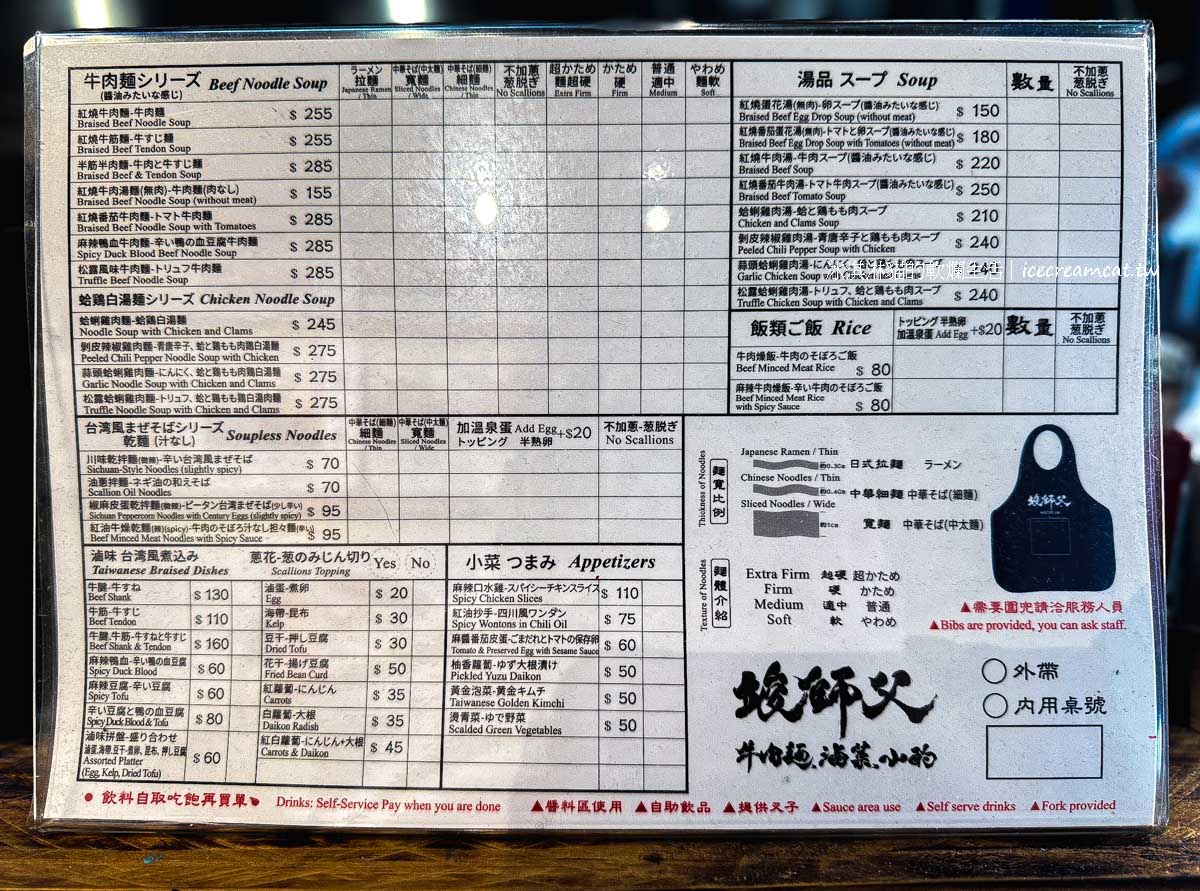 牛肉麵シリーズ Beef Noodle Soup
(醬油みたいな感じ)
ラーメン 拉麵 Japanese Ramen / Thin
中華そば(中太麵) 寬麵 Sliced Noodles / Wide
中華そば(細麵) 細麵 Chinese Noodles / Thin
不加蔥 葱脱ぎ No Scallions
超かため 麵超硬 Extra Firm
かため 硬 Firm
普通 適中 Medium
やわめ 麵軟 Soft
紅燒牛肉麵-牛肉麵 $ 255
Braised Beef Noodle Soup
紅燒牛筋麵-牛すじ麵 $ 255
Braised Beef Tendon Soup
半筋半肉麵-牛肉と牛すじ麵 $ 285
Braised Beef & Tendon Soup
紅燒牛肉湯麵(無肉)-牛肉麵(肉なし) $ 155
Braised Beef Noodle Soup (without meat)
紅燒番茄牛肉麵-トマト牛肉麵 $ 285
Braised Beef Noodle Soup with Tomatoes
麻辣鴨血牛肉麵-辛い鴨の血豆腐牛肉麵 $ 285
Spicy Duck Blood Beef Noodle Soup
松露風味牛肉麵-トリュフ牛肉麵 $ 285
Truffle Beef Noodle Soup
蛤鷄白湯麵シリーズ Chicken Noodle Soup
蛤蜊雞肉麵-蛤鷄白湯麵 $ 245
Noodle Soup with Chicken and Clams
剝皮辣椒雞肉麵-青唐辛子、蛤と鷄もも肉鷄白湯麵 $ 275
Peeled Chili Pepper Noodle Soup with Chicken
蒜頭蛤蜊雞肉麵-にんにく、蛤と鷄もも肉鷄白湯麵 $ 275
Garlic Noodle Soup with Chicken and Clams
松露蛤蜊雞肉麵-トリュフ、蛤と鷄もも鷄白湯肉麵 $ 275
Truffle Noodle Soup with Chicken and Clams
台湾風まぜそばシリーズ Soupless Noodles
乾麵 (汁なし)
中華そば(細麵) 細麵 Chinese Noodles / Thin
中華そば(中太麵) 寬麵 Sliced Noodles / Wide
加溫泉蛋 Add Egg +$20
トッピング 半熟卵
不加蔥-葱脱ぎ
No Scallions
川味乾拌麵(微辣)-辛い台湾風まぜそば $ 70
Sichuan-Style Noodles (slightly spicy)
油蔥拌麵-ネギ油の和えそば $ 70
Scallion Oil Noodles
椒麻皮蛋乾拌麵(微辣)-ピータン台湾まぜそば(少し辛い) $ 95
Sichuan Peppercorn Noodles with Century Eggs (slightly spicy)
紅油牛燥乾麵(辣)(spicy)-牛肉のそぼろ汁なし担々麵(辛い) $ 95
Beef Minced Meat Noodles with Spicy Sauce
滷味 台湾風煮込み
Taiwanese Braised Dishes
蔥花-葱のみじん切り Yes No
Scallions Topping
牛腱-牛すね $ 130
Beef Shank
牛筋-牛すじ $ 110
Beef Tendon
牛腱.牛筋-牛すねと牛すじ $ 160
Beef Shank & Tendon
麻辣鴨血-辛い鴨の血豆腐 $ 60
Spicy Duck Blood
麻辣豆腐-辛い豆腐 $ 60
Spicy Tofu
辛い豆腐と鴨の血豆腐 $ 80
Spicy Duck Blood & Tofu
滷味拼盤-盛り合わせ $ 60
滷蛋,海帶,豆干-煮卵, 昆布, 押し豆腐
Assorted Platter
(Egg, Kelp, Dried Tofu)
滷蛋-煮卵 $ 20
Egg
海帶-昆布 $ 30
Kelp
豆干-押し豆腐 $ 30
Dried Tofu
花干-揚げ豆腐 $ 50
Fried Bean Curd
紅蘿蔔-にんじん $ 35
Carrots
白蘿蔔-大根 $ 35
Daikon Radish
紅白蘿蔔-にんじん+大根 $ 45
Carrots & Daikon
小菜 つまみ Appetizers
麻辣口水雞-スパイシーチキンスライス $ 110
Spicy Chicken Slices
紅油抄手-四川風ワンタン $ 75
Spicy Wontons in Chili Oil
麻醬番茄皮蛋-ごまだれとトマトの保存卵 $ 60
Tomato & Preserved Egg with Sesame Sauce
柚香蘿蔔-ゆず大根漬け $ 50
Pickled Yuzu Daikon
黃金泡菜-黄金キムチ $ 50
Taiwanese Golden Kimchi
燙青菜-ゆで野菜 $ 50
Scalded Green Vegetables
湯品 スープ Soup
數量
不加蔥 葱脱ぎ No Scallions
紅燒蛋花湯(無肉)-卵スープ(醬油みたいな感じ) $ 150
Braised Beef Egg Drop Soup (without meat)
紅燒番茄蛋花湯(無肉)-トマトと卵スープ(醬油みたいな感じ) $ 180
Braised Beef Egg Drop Soup with Tomatoes (without meat)
紅燒牛肉湯-牛肉スープ(醬油みたいな感じ) $ 220
Braised Beef Soup
紅燒番茄牛肉湯-トマト牛肉スープ(醬油みたいな感じ) $ 250
Braised Beef Tomato Soup
蛤蜊雞肉湯-蛤と鷄もも肉スープ $ 210
Chicken and Clams Soup
剝皮辣椒雞肉湯-青唐辛子と鷄もも肉スープ $ 240
Peeled Chili Pepper Soup with Chicken
蒜頭蛤蜊雞肉湯-にんにく、蛤と鷄もも肉スープ 240
Garlic Chicken Soup with Clams
icecreamcat.tw
松露蛤蜊雞肉湯-トリュフ、蛤と鷄もも肉スープ $ 240
Truffle Chicken Soup with Clams
飯類ご飯 Rice
トッピング 半熟卵
加溫泉蛋 Add Egg +$20
數量
不加蔥 葱脱ぎ No Scallions
牛肉燥飯-牛肉のそぼろご飯 $ 80
Beef Minced Meat Rice
麻辣牛肉燥飯-辛い牛肉のそぼろご飯 $ 80
Beef Minced Meat Rice
with Spicy Sauce
Thickness of Noodles
麵寬比例
Japanese Ramen / Thin
約0.3cm 日式拉麵 ラーメン
Chinese Noodles / Thin
約0.4cm 中華細麵 中華そば(細麵)
Sliced Noodles / Wide
約1cm 寬麵 中華そば(中太麵)
Texture of Noodles
麵體介紹
Extra Firm 超硬 超かため
Firm 硬 かため
Medium 適中 普通
Soft 軟 やわめ
蛟師父
▲需要圍兜請洽服務人員
▲Bibs are provided, you can ask staff.
蛟師父
牛肉麵、滷菜、小酌
外帶
內用桌號
● 飲料自取吃飽再買單 Drinks: Self-Service Pay when you are done ▲醬料區使用 ▲自助飲品 ▲提供叉子 ▲Sauce area use ▲Self serve drinks ▲Fork provided